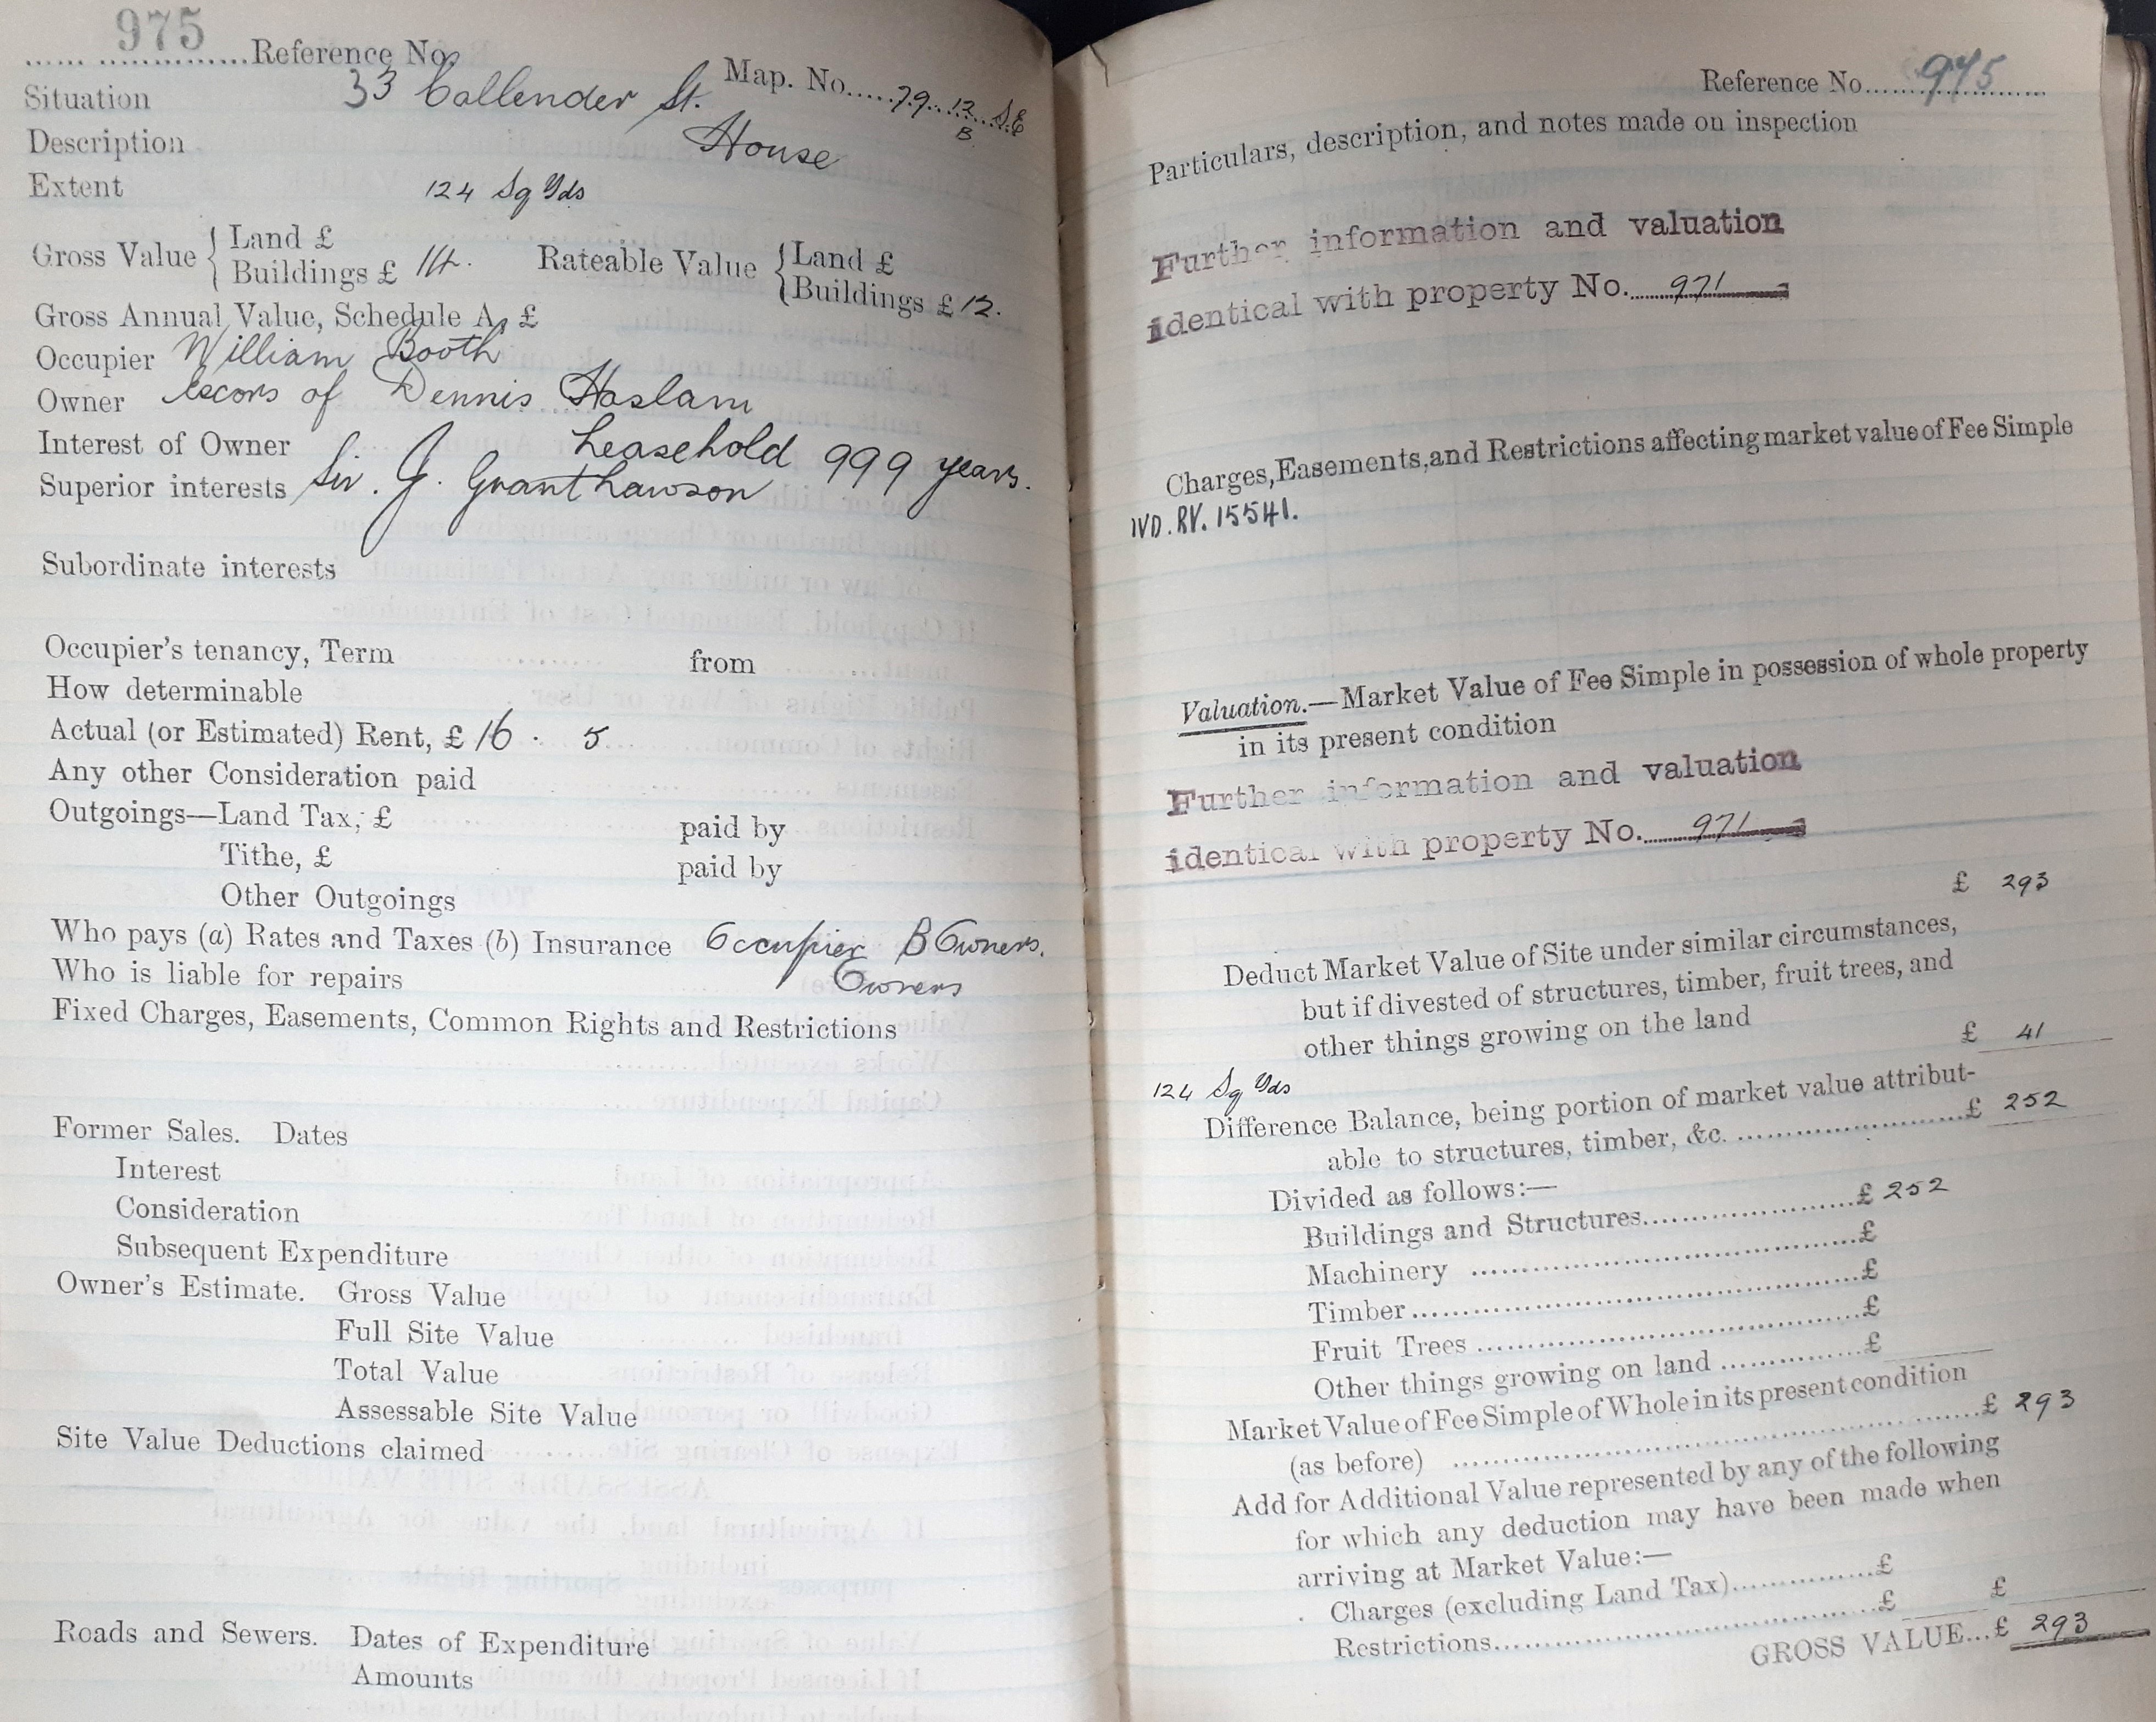 975
Reference No.
Map. No. 79. 12. S.E
B
Situation 33 Callender St.
Description House
Extent 124 Sq Yds
Gross Value { Land £
Buildings £ 14. Rateable Value { Land £
Buildings £ 12.
Gross Annual Value, Schedule A, £
Occupier William Booth
Owner Excors of Dennis Haslam
Interest of Owner Leasehold 999 years.
Superior interests Sir. J. Grant Lawson
Subordinate interests
Occupier's tenancy, Term from
How determinable
Actual (or Estimated) Rent, £ 16 . 5
Any other Consideration paid
Outgoings—Land Tax, £ paid by
Tithe, £ paid by
Other Outgoings
Who pays (a) Rates and Taxes (b) Insurance Occupier B Owners.
Who is liable for repairs Owners
Fixed Charges, Easements, Common Rights and Restrictions
Former Sales. Dates
Interest
Consideration
Subsequent Expenditure
Owner's Estimate. Gross Value
Full Site Value
Total Value
Assessable Site Value
Site Value Deductions claimed
Roads and Sewers. Dates of Expenditure
Amounts
Reference No. 975
Particulars, description, and notes made on inspection
Further information and valuation
identical with property No. 971
Charges, Easements, and Restrictions affecting market value of Fee Simple
IVD. RV. 15541.
Valuation.—Market Value of Fee Simple in possession of whole property
in its present condition
Further information and valuation
identical with property No. 971
£ 293
Deduct Market Value of Site under similar circumstances,
but if divested of structures, timber, fruit trees, and
other things growing on the land
£ 41
124 Sq Yds
Difference Balance, being portion of market value attribut-
able to structures, timber, &c. £ 252
Divided as follows:—
Buildings and Structures £ 252
Machinery £
Timber £
Fruit Trees £
Other things growing on land £
Market Value of Fee Simple of Whole in its present condition
(as before) £ 293
Add for Additional Value represented by any of the following
for which any deduction may have been made when
arriving at Market Value:—
Charges (excluding Land Tax) £
Restrictions £ £
GROSS VALUE...£ 293